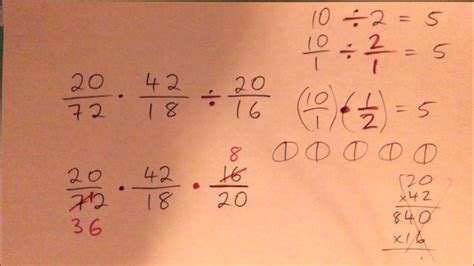 10 ÷ 2 = 5
10/1 ÷ 2/1 = 5
20/72 · 42/18 ÷ 20/16
(10/1) · (1/2) = 5
8
20/72 · 42/18 · 16/20
36
20
x42
840
x16